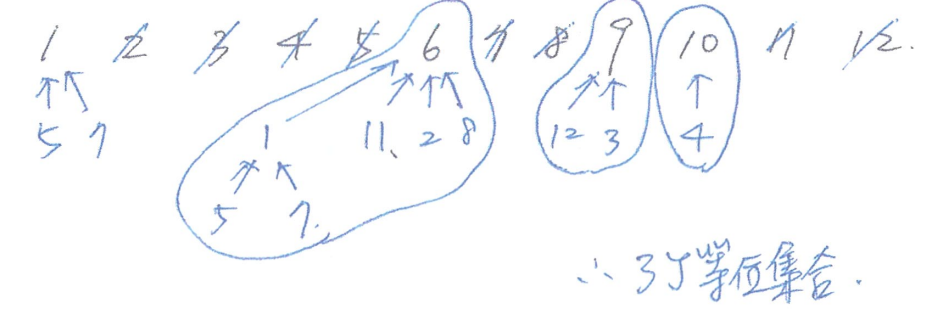 1 2 3 4 5 6 7 8 9 10 11 12.
5 7 1 11、 2 8 12 3 4
5 7.
∴ 3个等价集合.